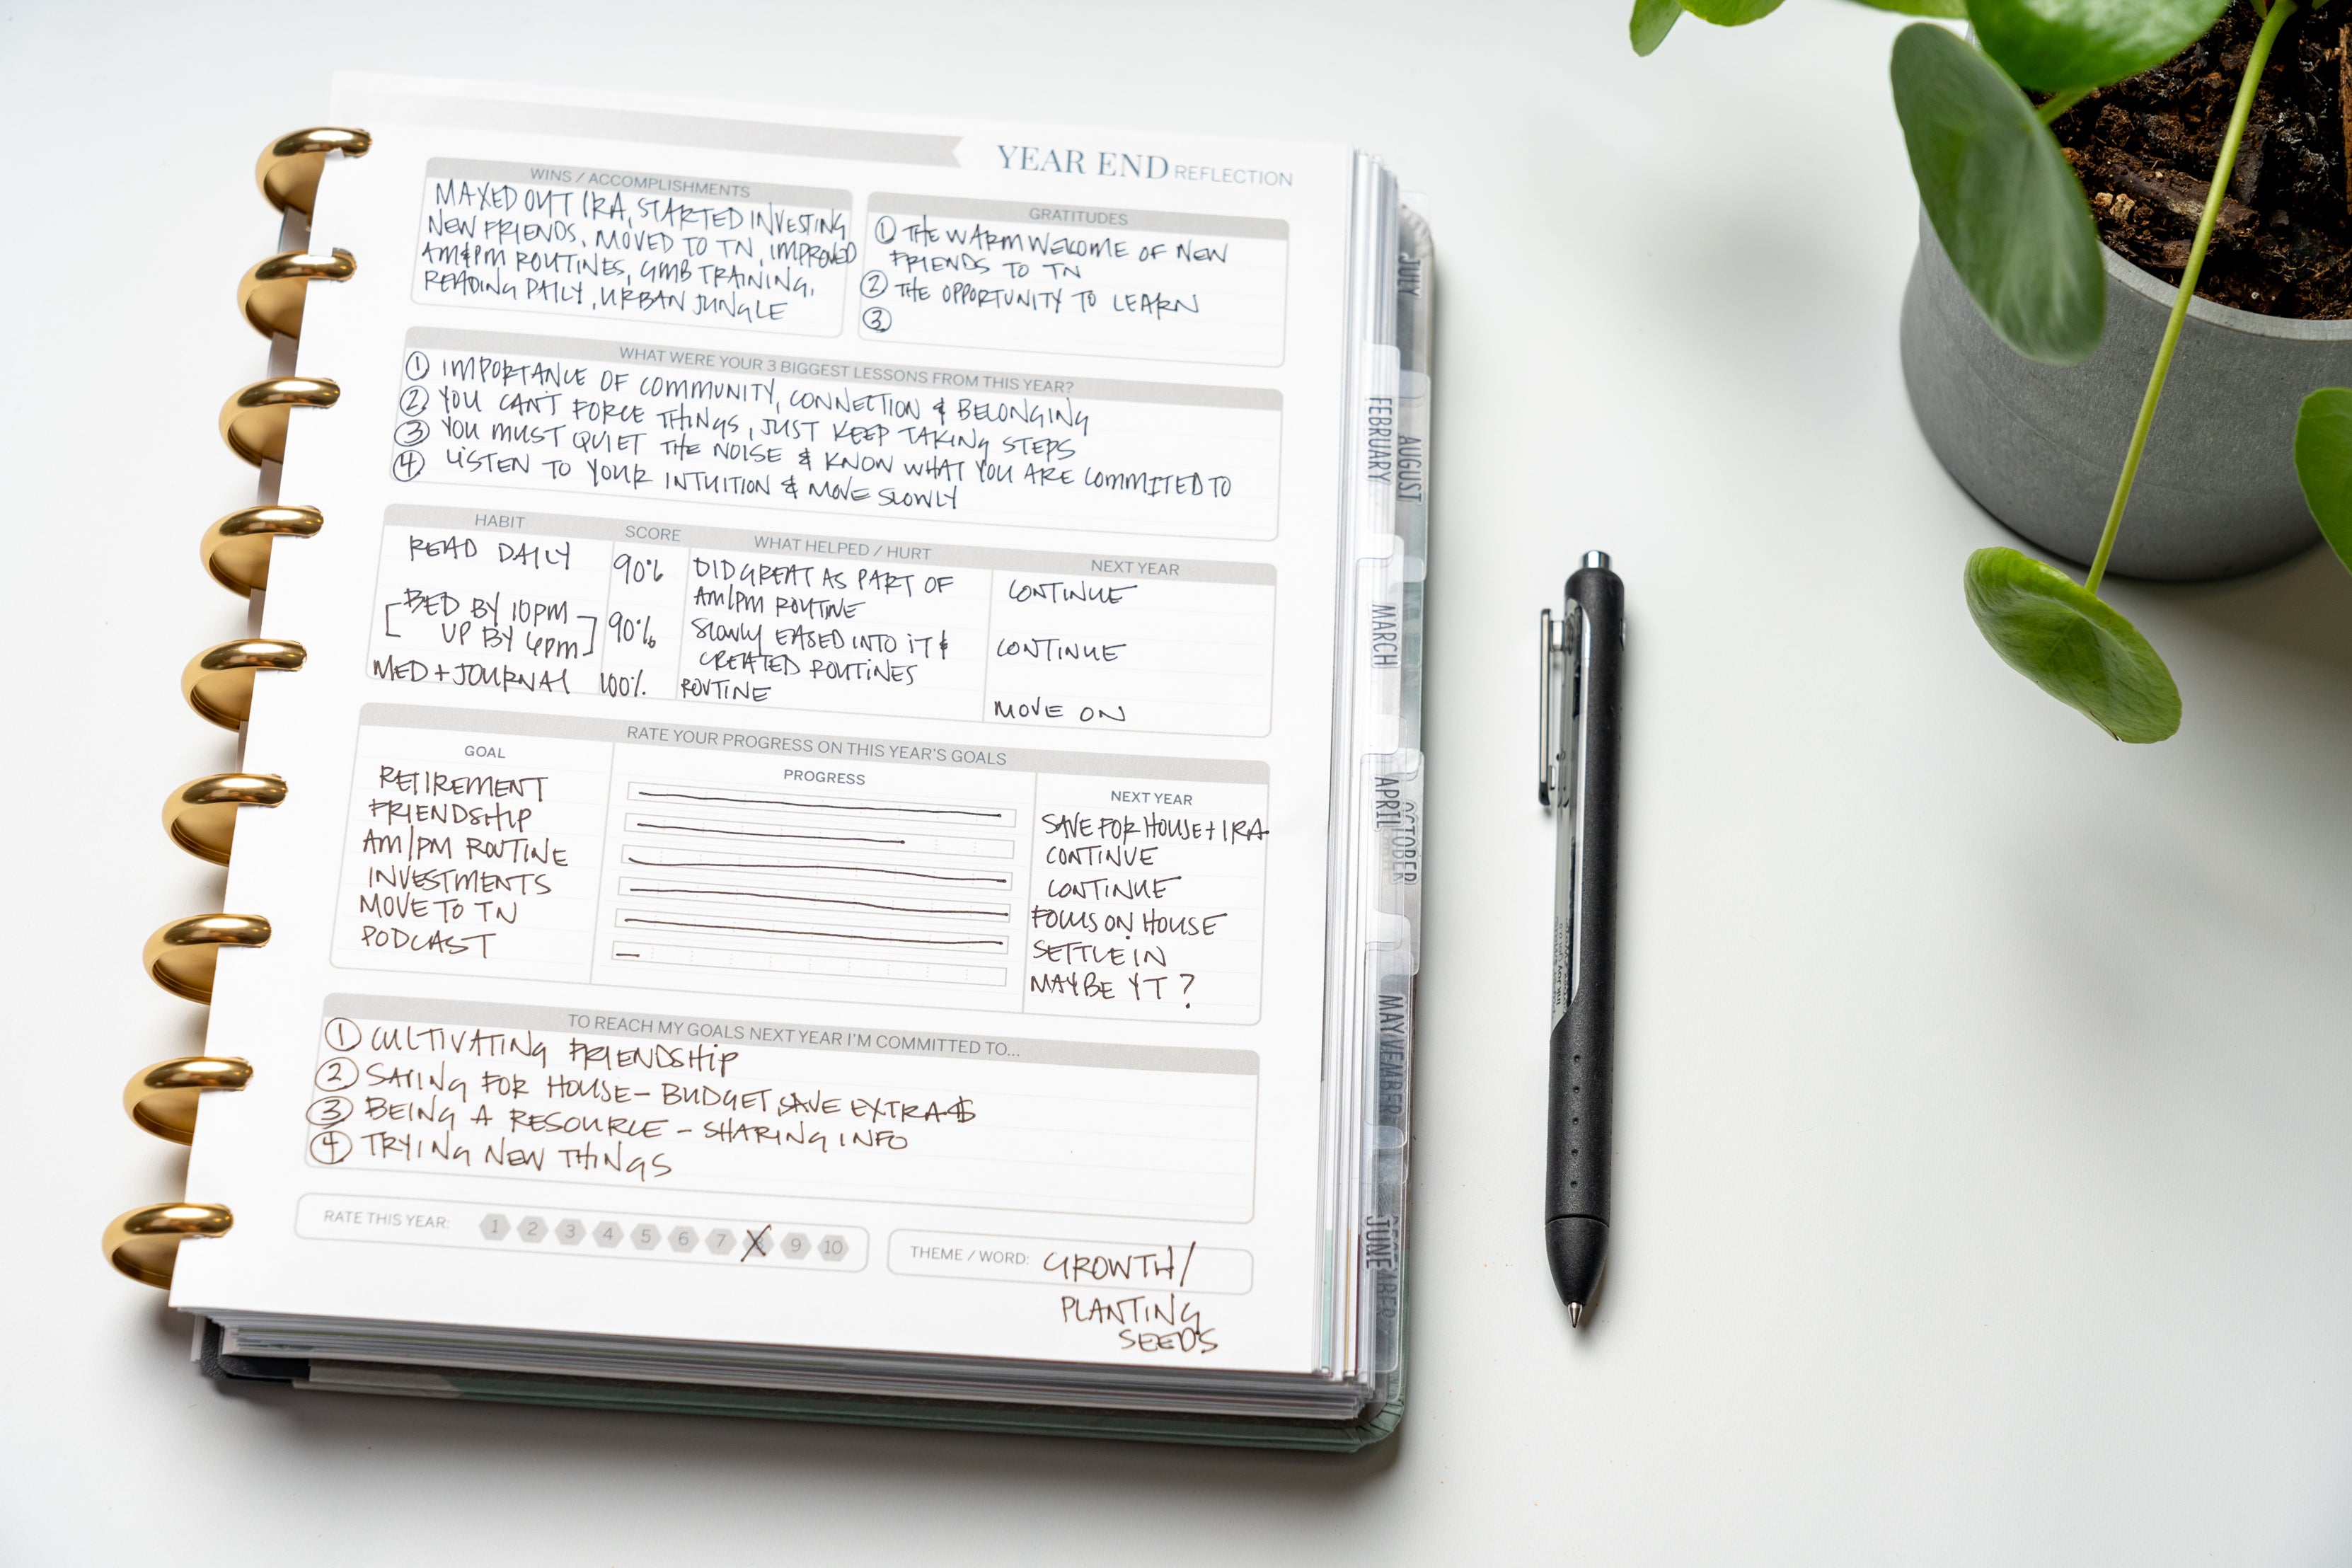 YEAR END REFLECTION
WINS / ACCOMPLISHMENTS
MAXED OUT IRA, STARTED INVESTING
NEW FRIENDS, MOVED TO TN, IMPROVED
AM & PM ROUTINES, GMB TRAINING,
READING DAILY, URBAN JUNGLE
GRATITUDES
① THE WARM WELCOME OF NEW
FRIENDS TO TN
② THE OPPORTUNITY TO LEARN
③
WHAT WERE YOUR 3 BIGGEST LESSONS FROM THIS YEAR?
① IMPORTANCE OF COMMUNITY, CONNECTION & BELONGING
② YOU CAN'T FORCE THINGS, JUST KEEP TAKING STEPS
③ YOU MUST QUIET THE NOISE & KNOW WHAT YOU ARE COMMITED TO
④ LISTEN TO YOUR INTUITION & MOVE SLOWLY
HABIT SCORE WHAT HELPED / HURT NEXT YEAR
READ DAILY 90% DID GREAT AS PART OF CONTINUE
AM/PM ROUTINE
[BED BY 10PM 90% SLOWLY EASED INTO IT & CONTINUE
UP BY 6PM] CREATED ROUTINES
MED + JOURNAL 100% ROUTINE MOVE ON
RATE YOUR PROGRESS ON THIS YEAR'S GOALS
GOAL PROGRESS NEXT YEAR
RETIREMENT SAVE FOR HOUSE + IRA
FRIENDSHIP CONTINUE
AM/PM ROUTINE CONTINUE
INVESTMENTS FOCUS ON HOUSE
MOVE TO TN SETTLE IN
PODCAST MAYBE YT?
TO REACH MY GOALS NEXT YEAR I'M COMMITTED TO...
① CULTIVATING FRIENDSHIP
② SAVING FOR HOUSE - BUDGET, SAVE EXTRA $
③ BEING A RESOURCE - SHARING INFO
④ TRYING NEW THINGS
RATE THIS YEAR: 1 2 3 4 5 6 7 X 9 10
THEME / WORD: GROWTH/
PLANTING
SEEDS
JULY
FEBRUARY
AUGUST
MARCH
APRIL
OCTOBER
MAY
JUNE